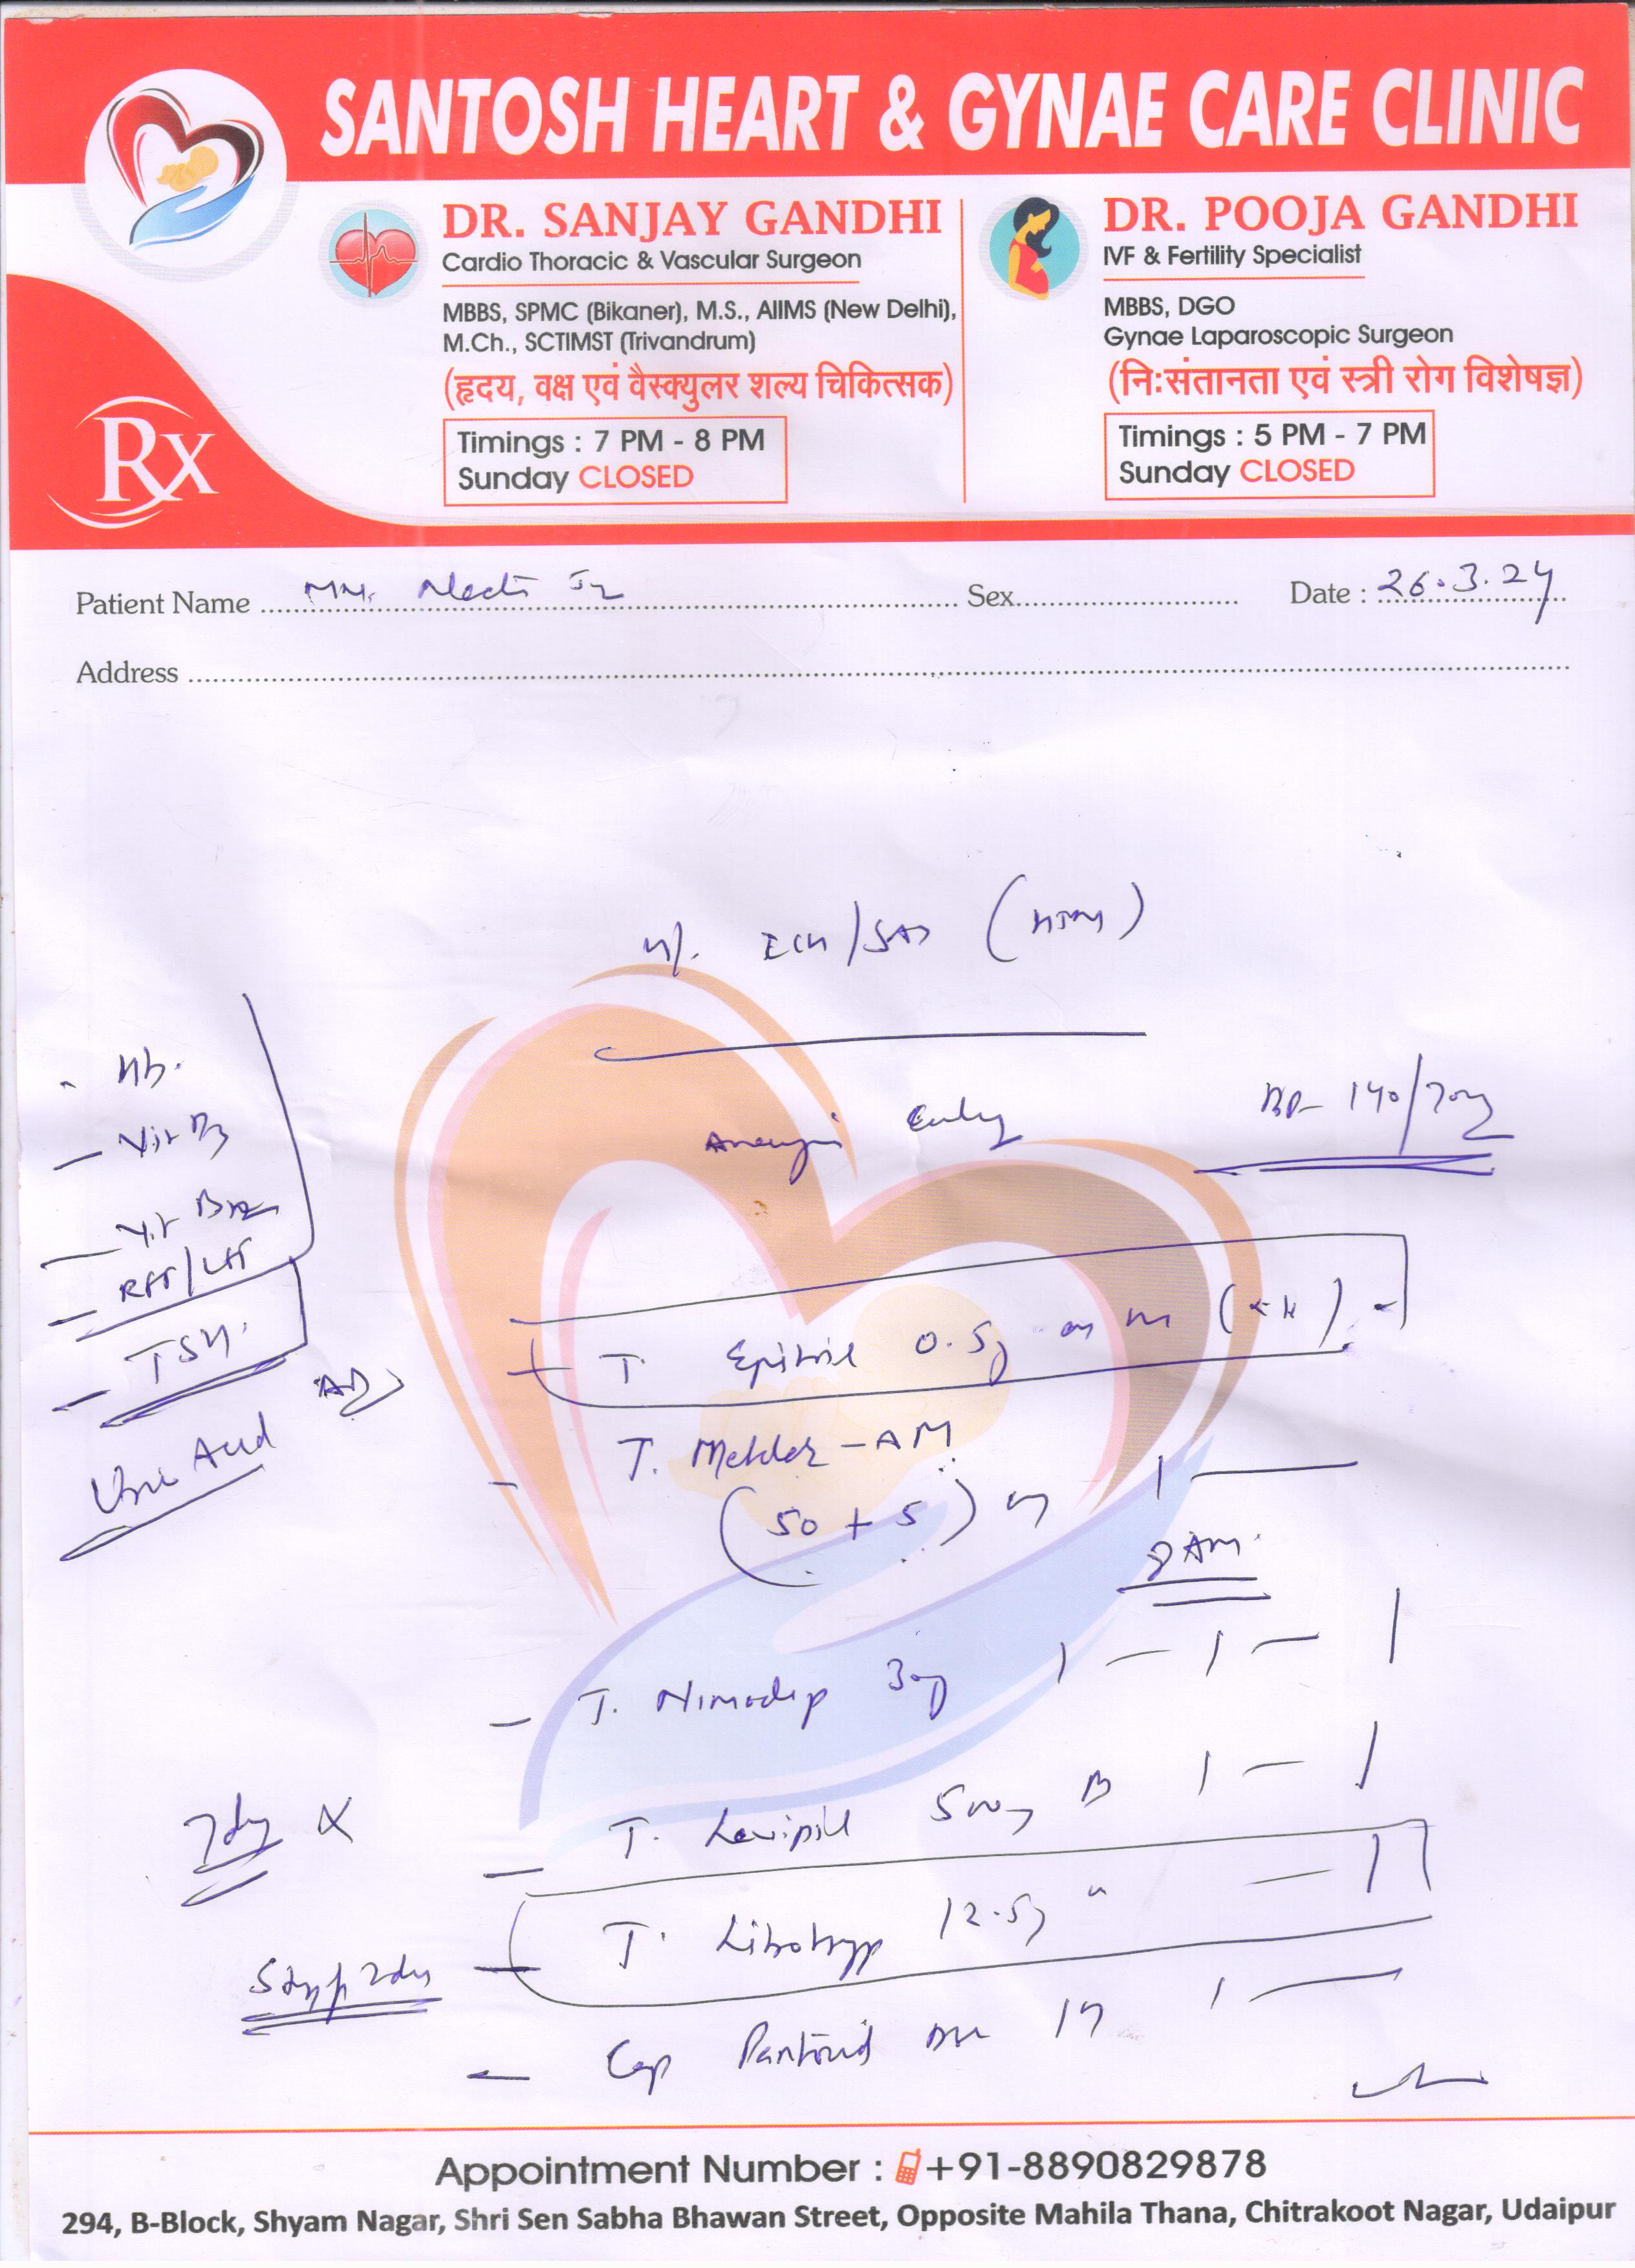 SANTOSH HEART & GYNAE CARE CLINIC
DR. SANJAY GANDHI
Cardio Thoracic & Vascular Surgeon
MBBS, SPMC (Bikaner), M.S., AIIMS (New Delhi),
M.Ch., SCTIMST (Trivandrum)
(हृदय, वक्ष एवं वैस्क्युलर शल्य चिकित्सक)
Timings : 7 PM - 8 PM
Sunday CLOSED
DR. POOJA GANDHI
IVF & Fertility Specialist
MBBS, DGO
Gynae Laparoscopic Surgeon
(निःसंतानता एवं स्त्री रोग विशेषज्ञ)
Timings : 5 PM - 7 PM
Sunday CLOSED
Rx
Patient Name Sex Date : 26.3.24
Address
BP- 140/70
- Hb.
- Vit D3
- Vit B12
- RFT/LFT
- TSH.
Uric Acid
T. 0.5
- T. -AM
(50 + 5) 1 —
8 AM
- T. Nimodip 30 1 — 1 — 1
- T. Levipil 500 1 — 1
7 day X
T. 12.5 — 1
- Cap 1 —
Appointment Number : +91-8890829878
294, B-Block, Shyam Nagar, Shri Sen Sabha Bhawan Street, Opposite Mahila Thana, Chitrakoot Nagar, Udaipur